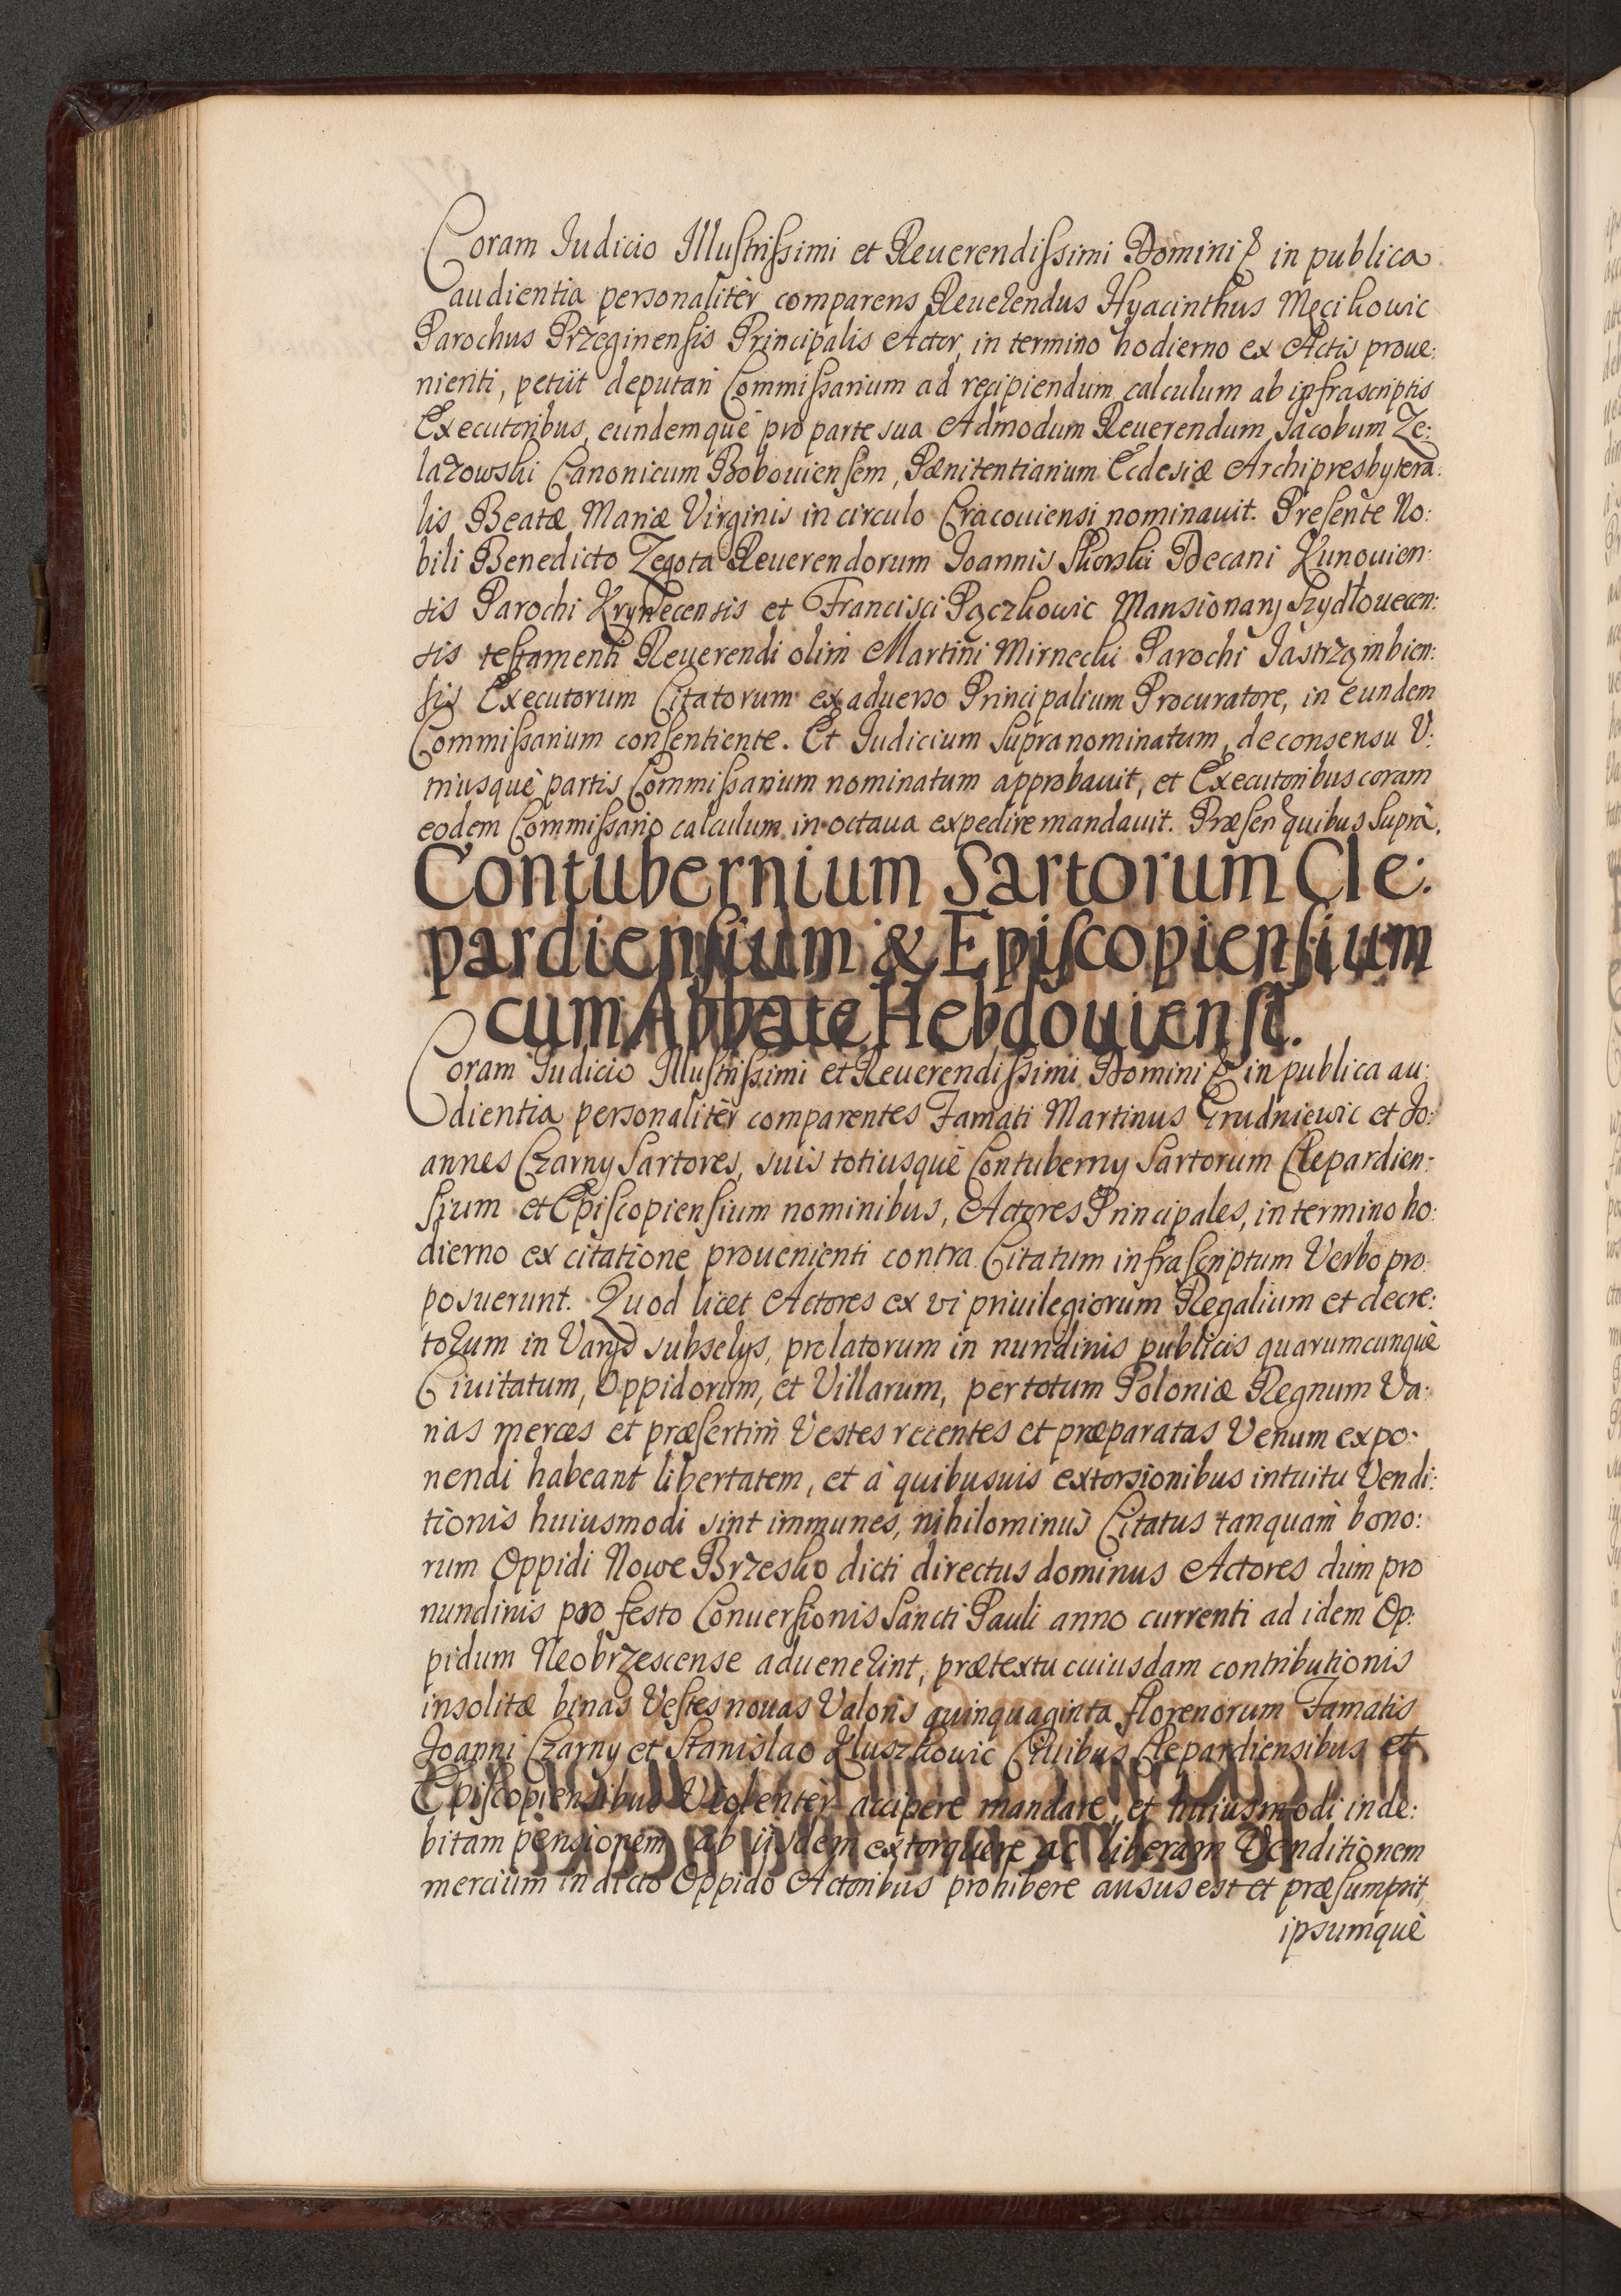 Coram Iudicio Illustrissimi et Reuerendissimi Domini & in publica
audientia personalitèr comparens Reuerendus Hyacinthus Męcikowic
Parochus Przeginensis Principalis Actor, in termino hodierno ex Actis proue:
nienti, petiit deputari Commissarium ad recipiendum calculum ab infrascriptis
Executoribus, eundemquè pro parte sua Admodum Reuerendum Jacobum Ze:
lazowski Canonicum Bobouiensem, Pænitentiarium Ecclesiæ Archipresbytera:
lis Beatæ Mariæ Virginis in circulo Cracouiensi nominauit. Presente No:
bili Benedicto Zegota Reuerendorum Joannis Skorski Decani Kunouien:
sis Parochi Krynecensis et Francisci Pączkowic Mansionarij Szydłouecen:
sis testamenti Reuerendi olim Martini Mirnecki Parochi Jastrząmbien:
sis Executorum Citatorum ex aduerso Principalium Procuratore, in eundem
Commissarium consentiente. Et Iudicium supranominatum, de consensu V:
triusquè partis Commissarium nominatum approbauit, et Executoribus coram
eodem Commissario calculum in octaua expedire mandauit. Præsen quibus suprà.
Contubernium Sartorum Cle:
pardiensium & Episcopiensium
cum Abbate Hebdouiensi.
Coram Iudicio Illustrissimi et Reuerendissimi Domini & in publica au:
dientia personalitèr comparentes Famati Martinus Grudniewic et Jo:
annes Czarny Sartores, suis totiusquè Contubernij Sartorum Clepardien:
sium et Episcopiensium nominibus, Actores Principales, in termino ho:
dierno ex citatione prouenienti contra Citatum infrascriptum Verbo pro:
posuerunt. Quod licet Actores ex vi priuilegiorum Regalium et decre:
torum in Varijs subselijs, prolatorum in nundinis publicis quarumcunquè
Ciuitatum, Oppidorum, et Villarum, per totum Poloniæ Regnum Va:
rias merces et præsertim Vestes recentes et præparatas Venum expo:
nendi habeant libertatem, et à quibusuis extorsionibus intuitu Vendi:
tionis huiusmodi sint immunes, nihilominus Citatus tanquam bono:
rum Oppidi Nowe Brzesko dicti directus dominus Actores dum pro
nundinis pro festo Conuersionis Sancti Pauli anno currenti ad idem Op:
pidum Neobrzescense aduenerint, prætextu cuiusdam contributionis
insolitæ binas Vestes nouas Valoris quinquaginta florenorum Famatis
Joanni Czarny et Stanislao Kluszkowic Ciuibus Clepardiensibus et
Episcopiensibus Violentèr accipere mandare, et huiusmodi inde:
bitam pensionem ab iisdem extorquere ac liberam Venditionem
mercium in dicto Oppido Actoribus prohibere ausus est et præsumpsit,
ipsumquè